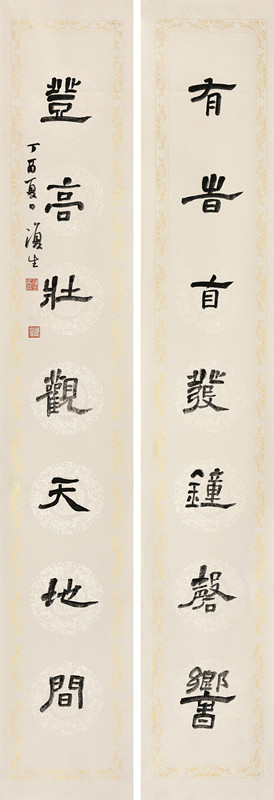 有旹自發鐘磬響
登高壯觀天地間
丁酉夏日